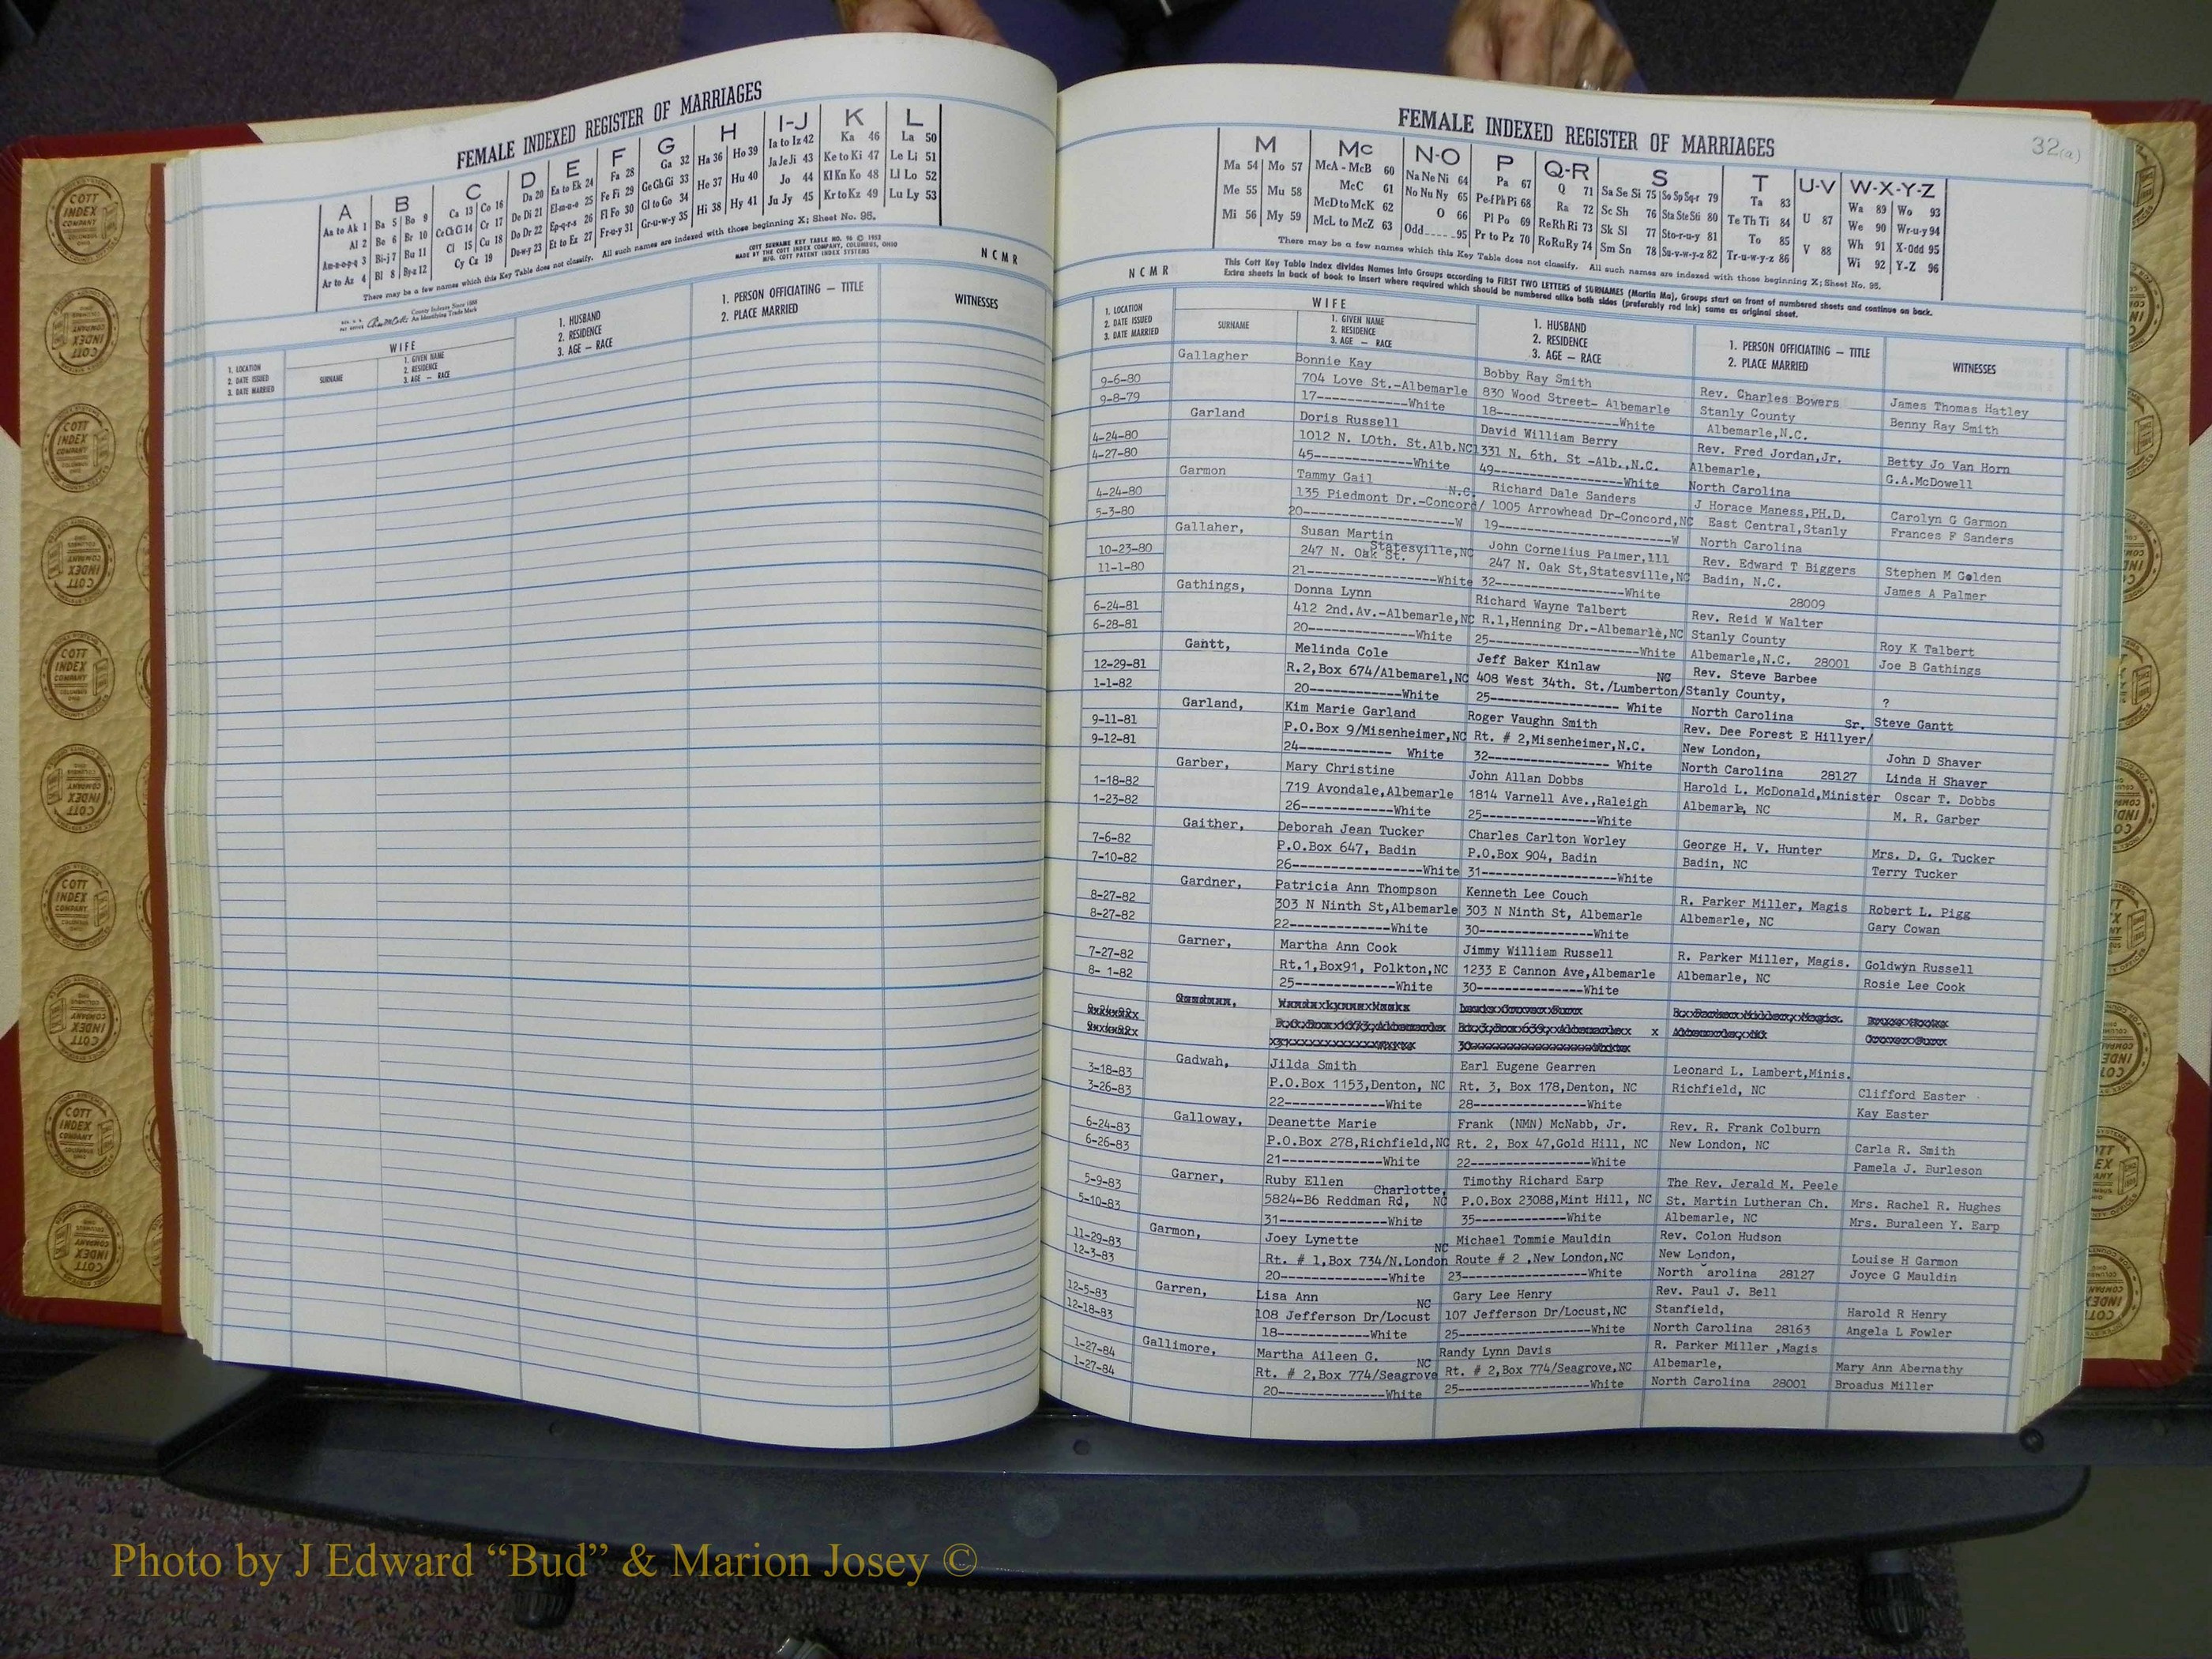 FEMALE INDEXED REGISTER OF MARRIAGES
A B C D E F G H I-J K L
Aa to Ak 1 Ba 5 Bo 9 Ca 13 Co 16 Da 20 Ea to Ek 24 Fa 28 Ga 32 Ha 36 Ho 39 Ia to Iz 42 Ka 46 La 50
Al 2 Be 6 Br 10 Ce Ch Ci 14 Cr 17 De Di 21 El-m-n-o 25 Fe Fi 29 Ge Gh Gi 33 He 37 Hu 40 Ja Je Ji 43 Ke to Ki 47 Le Li 51
Am-n-o-p-q 3 Bi-j 7 Bu 11 Cl 15 Cu 18 Do Dr 22 Ep-q-r-s 26 Fl Fo 30 Gl to Go 34 Hi 38 Hy 41 Jo 44 Kl Kn Ko 48 Ll Lo 52
Ar to Az 4 Bl 8 By-z 12 Cy Cz 19 Du-w-y 23 Et to Ez 27 Fr-u-y 31 Gr-u-w-y 35 Ju Jy 45 Kr to Kz 49 Lu Ly 53
There may be a few names which this Key Table does not classify. All such names are indexed with those beginning X; Sheet No. 95.
COTT SURNAME KEY TABLE NO. 96 © 1953
MADE BY THE COTT INDEX COMPANY, COLUMBUS, OHIO
MFG. COTT PATENT INDEX SYSTEMS
County Indexes Since 1888
An Identifying Trade Mark
N C M R
1. LOCATION
2. DATE ISSUED
3. DATE MARRIED
WIFE
SURNAME
1. GIVEN NAME
2. RESIDENCE
3. AGE — RACE
1. HUSBAND
2. RESIDENCE
3. AGE — RACE
1. PERSON OFFICIATING — TITLE
2. PLACE MARRIED
WITNESSES
FEMALE INDEXED REGISTER OF MARRIAGES
32(a)
M Mc N-O P Q-R S T U-V W-X-Y-Z
Ma 54 Mo 57 McA - McB 60 Na Ne Ni 64 Pa 67 Q 71 Sa Se Si 75 So Sp Sq-r 79 Ta 83 U 87 Wa 89 Wo 93
Me 55 Mu 58 McC 61 No Nu Ny 65 Pe-f Ph Pi 68 Ra 72 Sc Sh 76 Sta Ste Sti 80 Te Th Ti 84 V 88 We 90 Wr-u-y 94
Mi 56 My 59 McD to McK 62 O 66 Pl Po 69 Re Rh Ri 73 Sk Sl 77 Sto-r-u-y 81 To 85 Wh 91 X-Odd 95
McL to McZ 63 Odd 95 Pr to Pz 70 Ro Ru Ry 74 Sm Sn 78 Su-v-w-y-z 82 Tr-u-w-y-z 86 Wi 92 Y-Z 96
There may be a few names which this Key Table does not classify. All such names are indexed with those beginning X; Sheet No. 95.
This Cott Key Table Index divides Names into Groups according to FIRST TWO LETTERS of SURNAMES (Martin Ma), Groups start on front of numbered sheets and continue on back.
Extra sheets in back of book to insert where required which should be numbered alike both sides (preferably red ink) same as original sheet.
N C M R
1. LOCATION
2. DATE ISSUED
3. DATE MARRIED
WIFE
SURNAME
1. GIVEN NAME
2. RESIDENCE
3. AGE — RACE
1. HUSBAND
2. RESIDENCE
3. AGE — RACE
1. PERSON OFFICIATING — TITLE
2. PLACE MARRIED
WITNESSES
Gallagher Bonnie Kay Bobby Ray Smith Rev. Charles Bowers James Thomas Hatley
9-6-80 704 Love St.-Albemarle 830 Wood Street- Albemarle Stanly County Benny Ray Smith
9-8-79 17------------White 18------------White Albemarle,N.C.
Garland Doris Russell David William Berry Rev. Fred Jordan,Jr. Betty Jo Van Horn
4-24-80 1012 N. LOth. St.Alb.NC 1331 N. 6th. St -Alb.,N.C. Albemarle, G.A.McDowell
4-27-80 45------------White 49------------White North Carolina
Garmon Tammy Gail Richard Dale Sanders J Horace Maness,PH.D. Carolyn G Garmon
4-24-80 135 Piedmont Dr.-Concord/ N.C. 1005 Arrowhead Dr-Concord,NC East Central,Stanly Frances F Sanders
5-3-80 20------------W 19------------W North Carolina
Gallaher, Susan Martin John Cornelius Palmer,111 Rev. Edward T Biggers Stephen M Golden
10-23-80 247 N. Oak St. / Statesville,NC 247 N. Oak St,Statesville,NC Badin, N.C. James A Palmer
11-1-80 21------------White 32------------White 28009
Gathings, Donna Lynn Richard Wayne Talbert Rev. Reid W Walter Roy K Talbert
6-24-81 412 2nd.Av.-Albemarle,NC R.1,Henning Dr.-Albemarle,NC Stanly County Joe B Gathings
6-28-81 20------------White 25------------White Albemarle,N.C. 28001
Gantt, Melinda Cole Jeff Baker Kinlaw Rev. Steve Barbee ?
12-29-81 R.2,Box 674/Albemarel,NC 408 West 34th. St./Lumberton/ NC Stanly County, Steve Gantt
1-1-82 20------------White 25------------ White North Carolina
Garland, Kim Marie Garland Roger Vaughn Smith Rev. Dee Forest E Hillyer/ Sr. John D Shaver
9-11-81 P.O.Box 9/Misenheimer,NC Rt. # 2,Misenheimer,N.C. New London, Linda H Shaver
9-12-81 24------------ White 32------------ White North Carolina 28127
Garber, Mary Christine John Allan Dobbs Harold L. McDonald,Minister Oscar T. Dobbs
1-18-82 719 Avondale,Albemarle 1814 Varnell Ave.,Raleigh Albemarle, NC M. R. Garber
1-23-82 26------------White 25------------White
Gaither, Deborah Jean Tucker Charles Carlton Worley George H. V. Hunter Mrs. D. G. Tucker
7-6-82 P.O.Box 647, Badin P.O.Box 904, Badin Badin, NC Terry Tucker
7-10-82 26------------White 31------------White
Gardner, Patricia Ann Thompson Kenneth Lee Couch R. Parker Miller, Magis Robert L. Pigg
8-27-82 303 N Ninth St,Albemarle 303 N Ninth St, Albemarle Albemarle, NC Gary Cowan
8-27-82 22------------White 30------------White
Garner, Martha Ann Cook Jimmy William Russell R. Parker Miller, Magis. Goldwyn Russell
7-27-82 Rt.1,Box91, Polkton,NC 1233 E Cannon Ave,Albemarle Albemarle, NC Rosie Lee Cook
8- 1-82 25------------White 30------------White
Gadwah, Jilda Smith Earl Eugene Gearren Leonard L. Lambert,Minis. Clifford Easter
3-18-83 P.O.Box 1153,Denton, NC Rt. 3, Box 178,Denton, NC Richfield, NC Kay Easter
3-26-83 22------------White 28------------White
Galloway, Deanette Marie Frank (NMN) McNabb, Jr. Rev. R. Frank Colburn Carla R. Smith
6-24-83 P.O.Box 278,Richfield,NC Rt. 2, Box 47,Gold Hill, NC New London, NC Pamela J. Burleson
6-26-83 21------------White 22------------White
Garner, Ruby Ellen Timothy Richard Earp The Rev. Jerald M. Peele Mrs. Rachel R. Hughes
5-9-83 5824-B6 Reddman Rd, Charlotte, NC P.O.Box 23088,Mint Hill, NC St. Martin Lutheran Ch. Mrs. Buraleen Y. Earp
5-10-83 31------------White 35------------White Albemarle, NC
Garmon, Joey Lynette Michael Tommie Mauldin Rev. Colon Hudson Louise H Garmon
11-29-83 Rt. # 1,Box 734/N.London NC Route # 2 ,New London,NC New London, Joyce G Mauldin
12-3-83 20------------White 23------------White North arolina 28127
Garren, Lisa Ann Gary Lee Henry Rev. Paul J. Bell Harold R Henry
12-5-83 108 Jefferson Dr/Locust NC 107 Jefferson Dr/Locust,NC Stanfield, Angela L Fowler
12-18-83 18------------White 25------------White North Carolina 28163
Gallimore, Martha Aileen G. Randy Lynn Davis R. Parker Miller ,Magis Mary Ann Abernathy
1-27-84 Rt. # 2,Box 774/Seagrove NC Rt. # 2,Box 774/Seagrove,NC Albemarle, Broadus Miller
1-27-84 20------------White 25------------White North Carolina 28001
Photo by J Edward “Bud” & Marion Josey ©